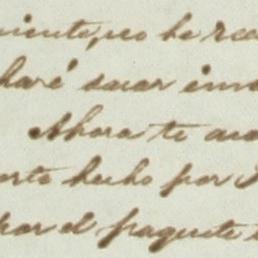 miento, no he rec
haré sacar inm
Ahora te
orte hecho por
por el paquete